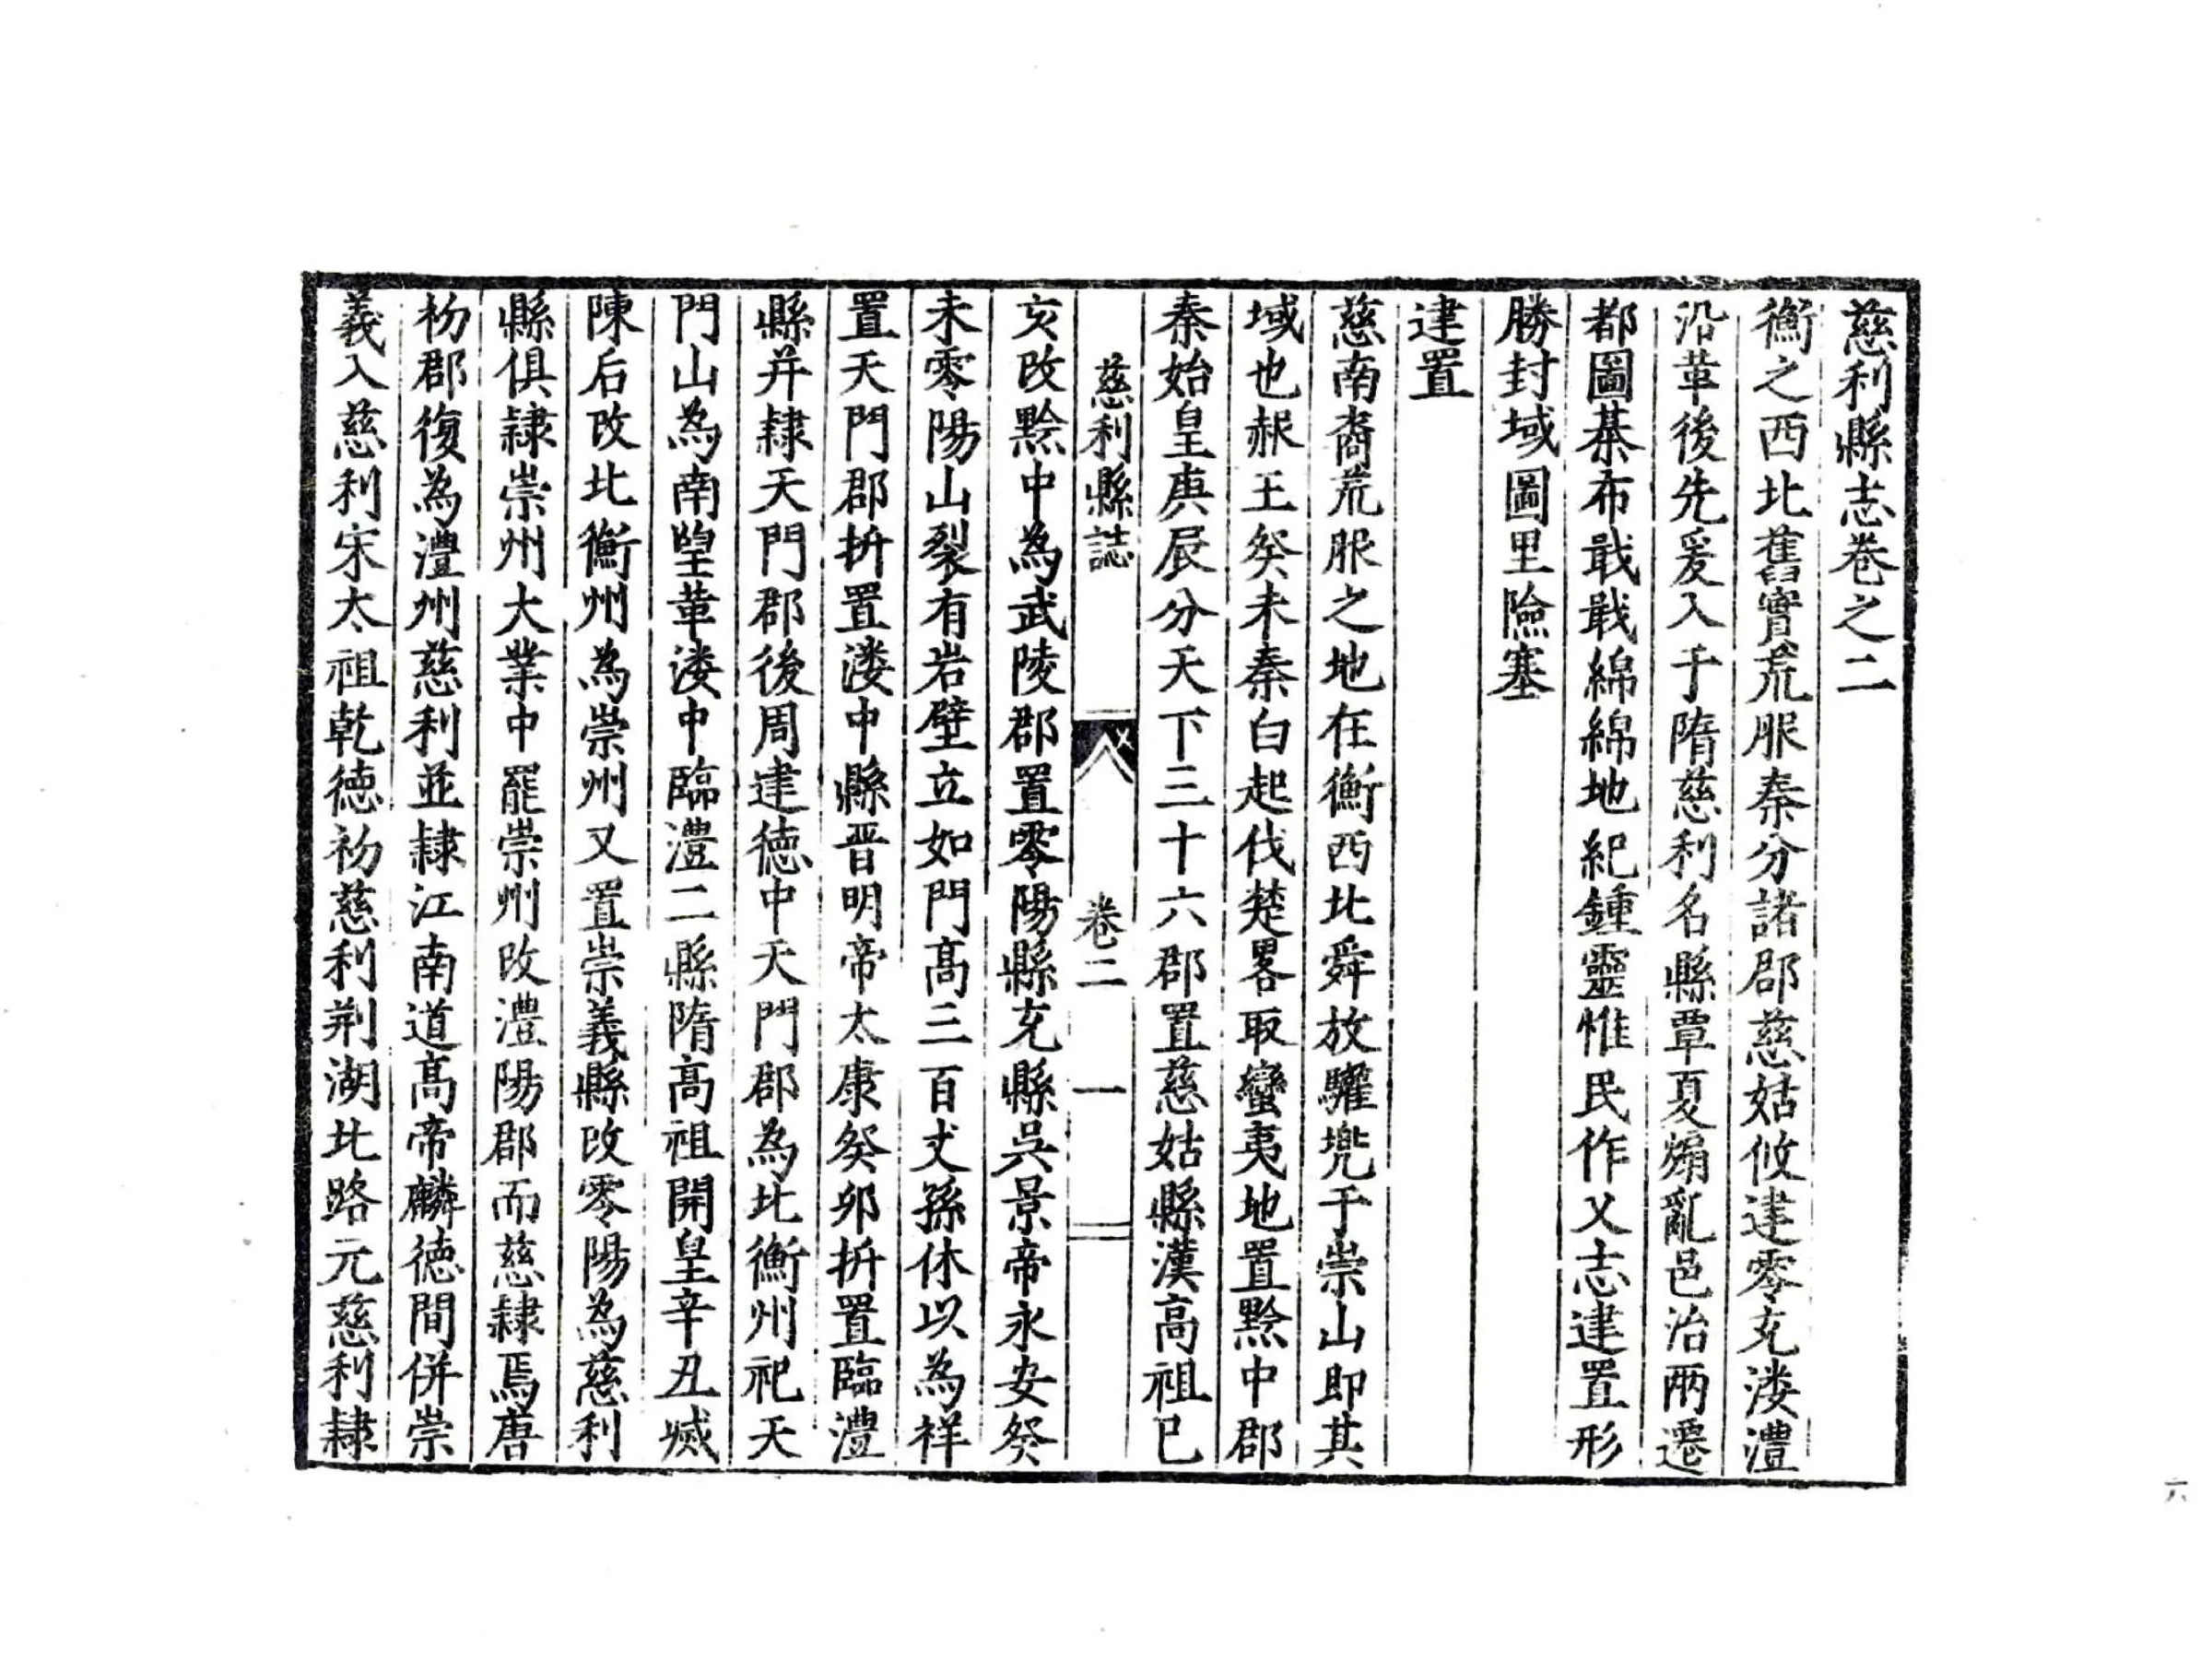 慈利縣志卷之二
衡之西北舊實荒服秦分諸郡慈姑攸建零充漊澧
沿革後先爰入于隋慈利名縣覃夏煽亂邑治兩遷
都圖棊布戢戢綿綿地紀鍾靈惟民作乂志建置形
勝封域圖里險塞
建置
慈南裔荒服之地在衡西北舜放驩兠于崇山即其
域也赧王癸未秦白起伐楚畧取蠻夷地置黔中郡
秦始皇庚辰分天下三十六郡置慈姑縣漢高祖巳
慈利縣誌 卷二 一
亥改黔中為武陵郡置零陽縣充縣吳景帝永安癸
未零陽山裂有岩壁立如門高三百丈孫休以為祥
置天門郡拆置漊中縣晋明帝太康癸卯拆置臨澧
縣并隸天門郡後周建德中天門郡為北衡州祀天
門山為南朢革漊中臨澧二縣隋高祖開皇辛丑烕
陳后改北衡州為崇州又置崇義縣改零陽為慈利
縣俱隸崇州大業中罷崇州改澧陽郡而慈隸焉唐
杒郡復為澧州慈利並隸江南道高帝麟德間併崇
義入慈利宋太祖乾德初慈利荆湖北路元慈利隸
六